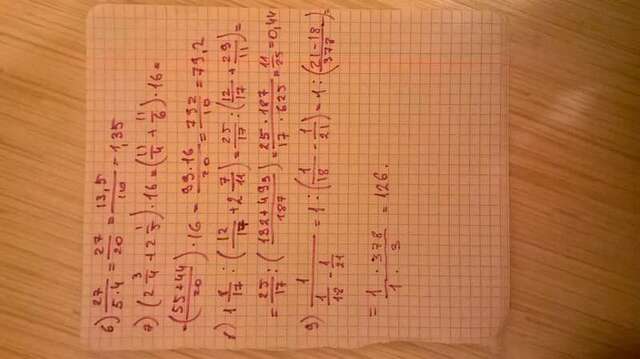 6) 27/5·4 = 27/20 = 13,5/10 = 1,35
7) (2 3/4 + 2 1/5)·16 = (11/4 + 11/6)·16 =
= (55+44/20)·16 = 99·16/20 = 792/10 = 79,2
8) 1 8/17 : (12/17 + 2 7/11) = 25/17 : (12/17 + 29/11) =
= 25/17 : (132+493/187) = 25·187/17·625 = 11/25 = 0,44
9) 1/(1/18 - 1/21) = 1 : (1/18 - 1/21) = 1 : (21-18/378) =
= 1·378/1·3 = 126.